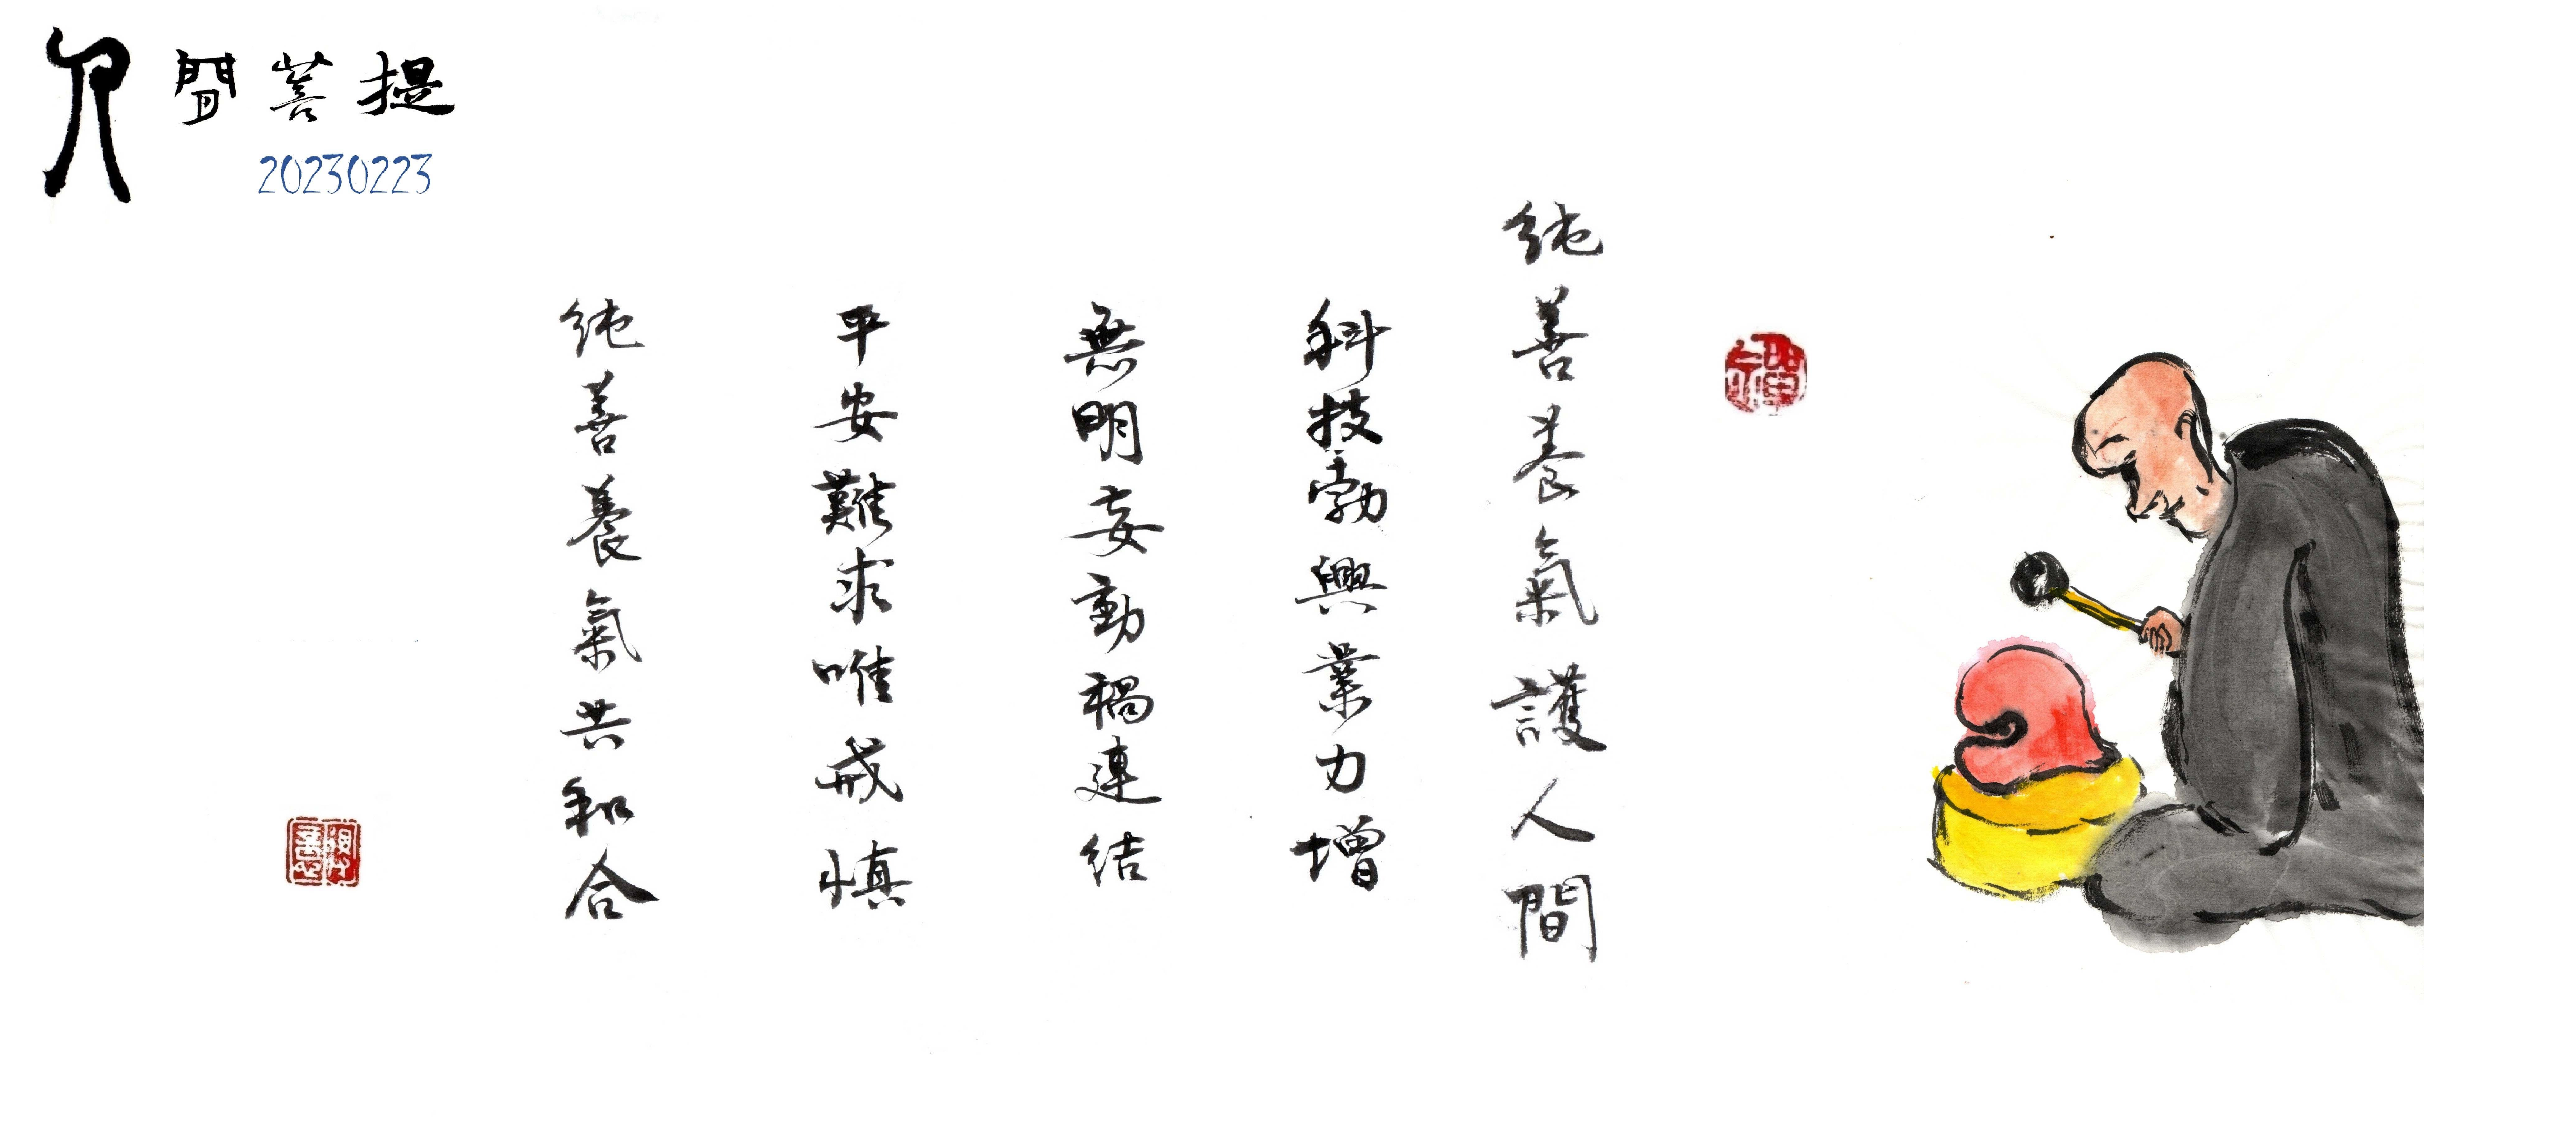 人間菩提
20230223
純善養氣護人間
科技勃興業力增
無明妄動禍連結
平安難求唯戒慎
純善養氣共和合